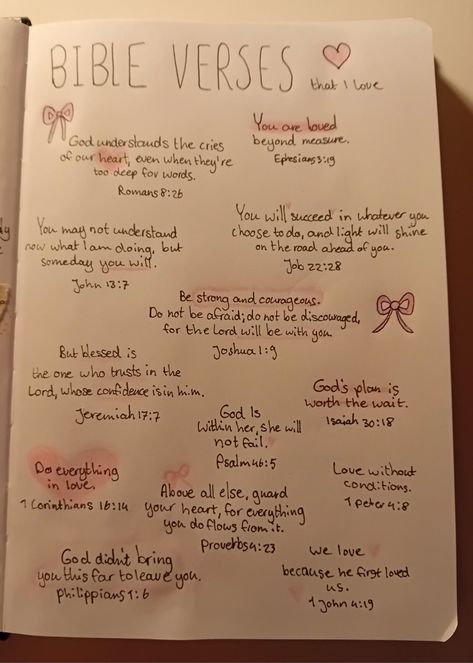 BIBLE VERSES
that I love
God understands the cries
of our heart, even when they're
too deep for words.
Romans 8:26
You are loved
beyond measure.
Ephesians 3:19
You may not understand
now what I am doing, but
someday you will.
John 13:7
You will succeed in whatever you
choose to do, and light will shine
on the road ahead of you.
Job 22:28
Be strong and courageous.
Do not be afraid; do not be discouraged,
for the Lord will be with you.
Joshua 1:9
But blessed is
the one who trusts in the
Lord, whose confidence is in him.
Jeremiah 17:7
God Is
within her, she will
not fail.
Psalm 46:5
God's plan is
worth the wait.
Isaiah 30:18
Do everything
in love.
1 Corinthians 16:14
Above all else, guard
your heart, for everything
you do flows from it.
Proverbs 4:23
Love without
conditions.
1 Peter 4:8
God didn't bring
you this far to leave you.
Philippians 1:6
We love
because he first loved
us.
1 John 4:19